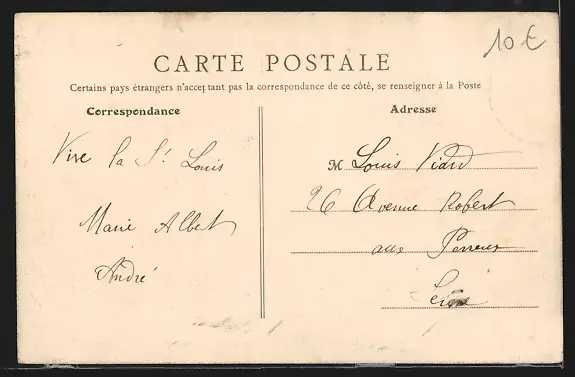 10 €
CARTE POSTALE
Certains pays étrangers n'acceptant pas la correspondance de ce côté, se renseigner à la Poste
Correspondance
Adresse
Vive la St Louis
Marie Albert
André
M Louis Viard
26 Avenue Robert
aux Perreux
Seine